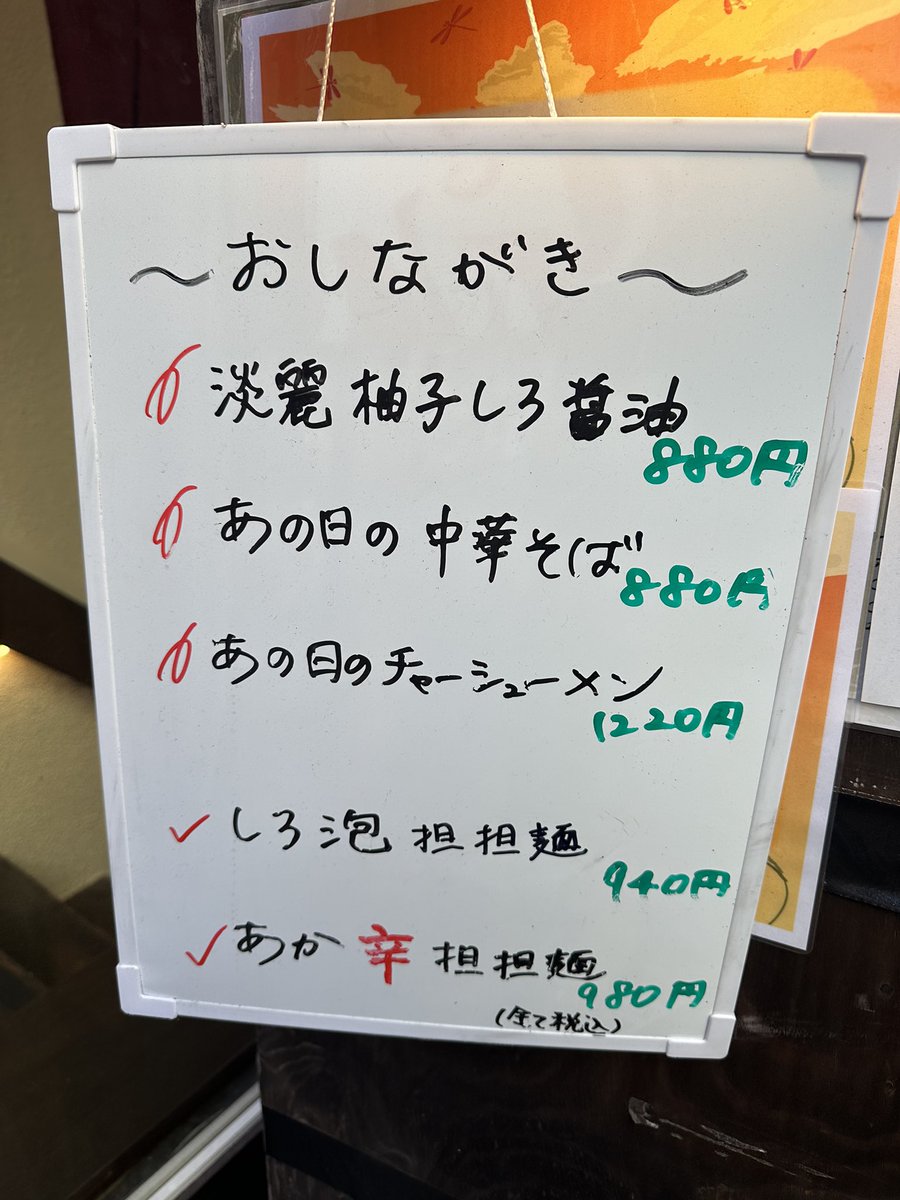 ～おしながき～
淡麗 柚子しろ醤油
880円
あの日の中華そば
880円
あの日のチャーシューメン
1220円
しろ泡担担麺
940円
あか辛担担麺
980円
(全て税込)